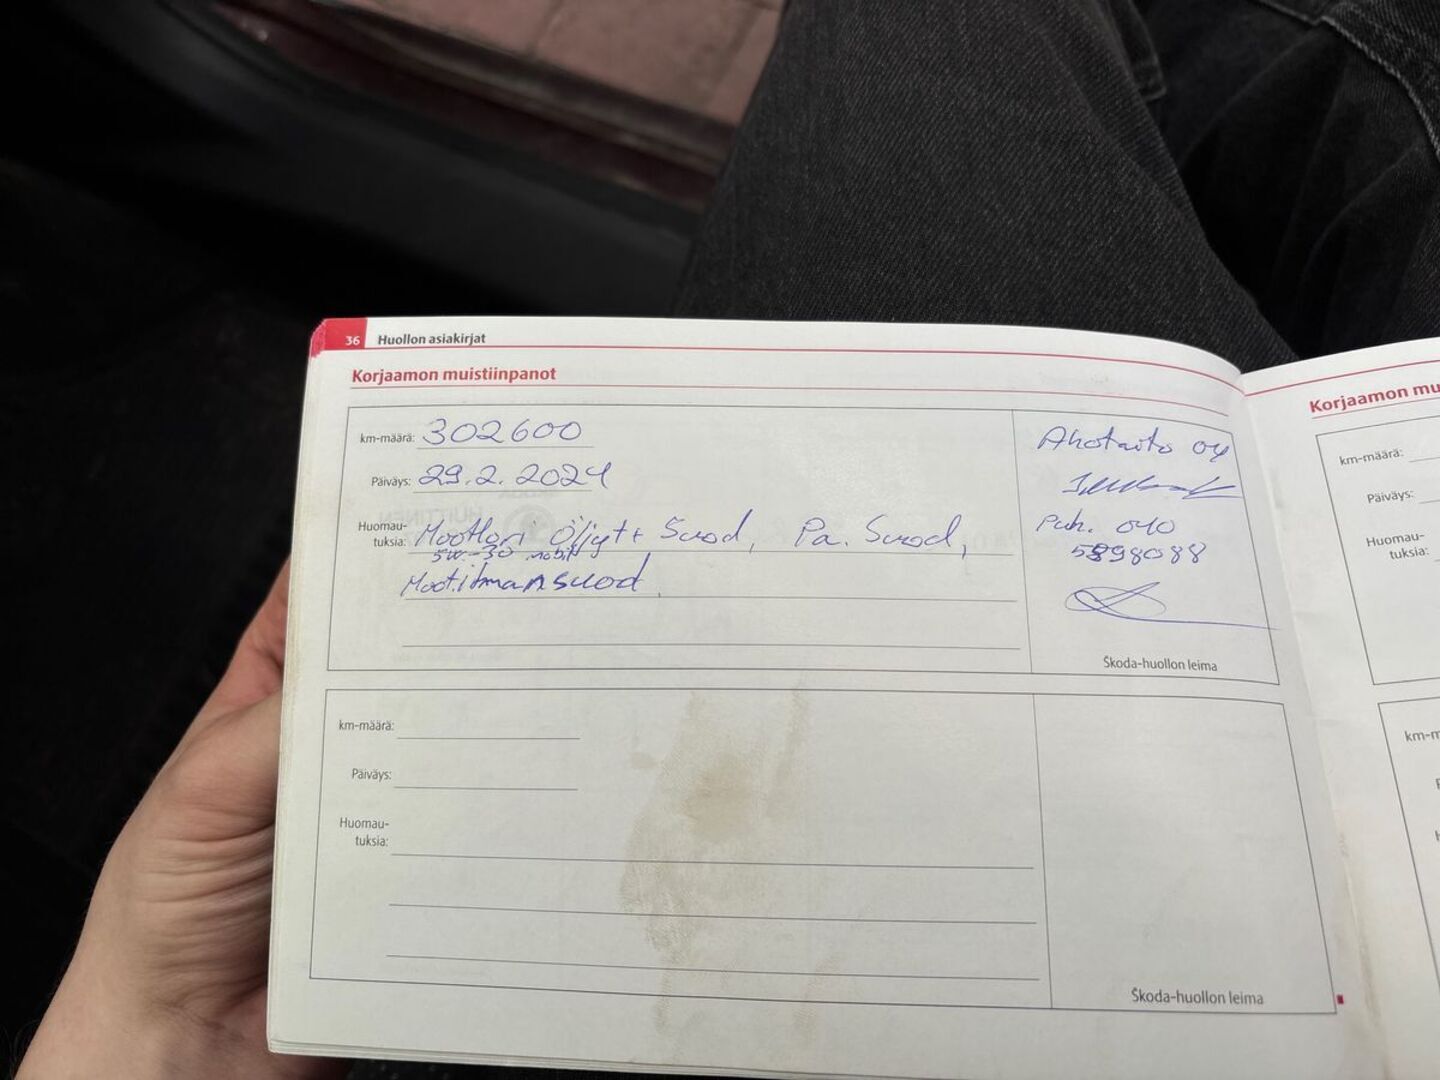 36 Huollon asiakirjat
Korjaamon muistiinpanot
km-määrä: 302600
Päiväys: 29.2.2024
Huomau-
tuksia: Moottori Öljyt+ Suod, Pa. Suod,
5w-30 mobil
Moot.ilmansuod.
Ahotaito oy
Puh. 040
5898088
Škoda-huollon leima
km-määrä:
Päiväys:
Huomau-
tuksia:
Škoda-huollon leima
Korjaamon mu
km-määrä:
Päiväys:
Huomau-
tuksia:
km-m